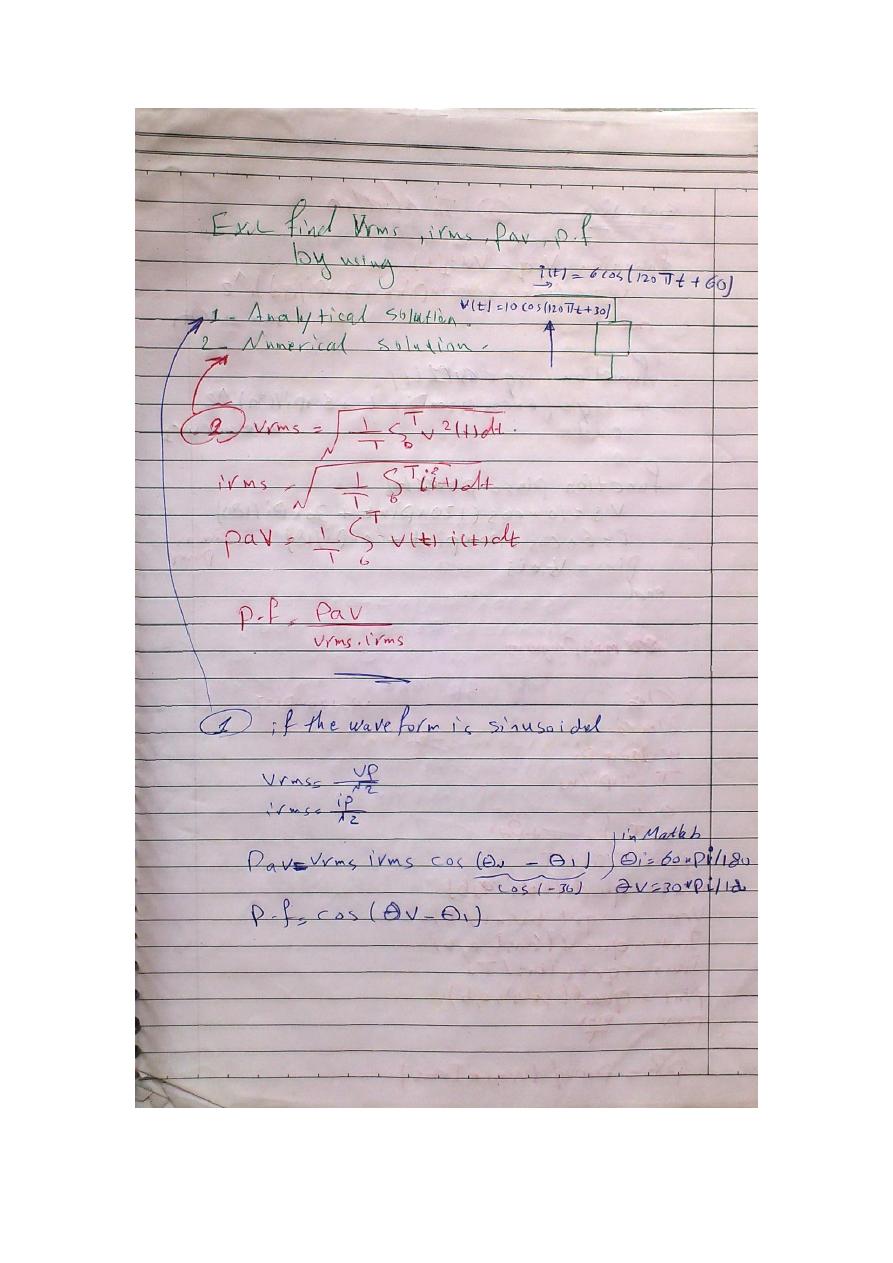 Ex:L find Vrms , irms , Pav , p.f
by using
i(t) = 6 cos(120πt + 60)
1 - Analytical solution.
v(t) = 10 cos(120πt+30)
2 - Numerical solution.
2 vrms = √ 1/T ∫₀ᵀ v²(t)dt.
irms = √ 1/T ∫₀ᵀ i²(t)dt
pav = 1/T ∫₀ᵀ v(t) i(t)dt
p.f = Pav / vrms.irms
1 if the waveform is sinusoidal
vrms = vp/√2
irms = ip/√2
in Matlab
Pav = vrms irms cos (θv - θi) θi = 60*pi/180
cos(-30) θv = 30*pi/18
p.f = cos(θv - θi)